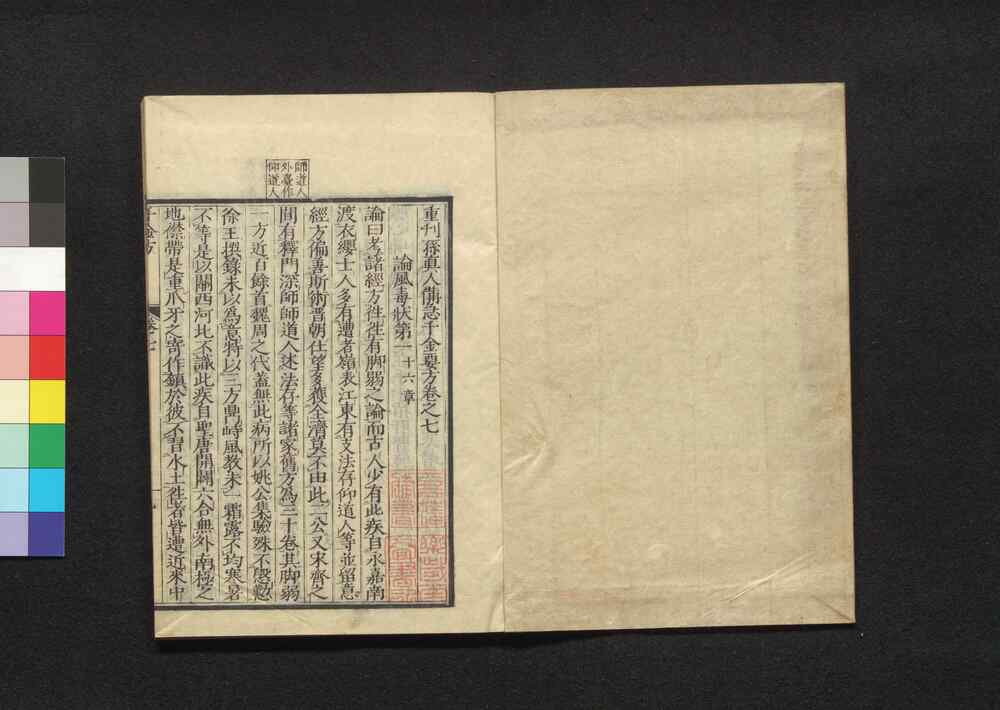 師道人
外臺作
仰道人
重刊孫真人備急千金要方卷之七
論風毒狀第一 十六章
論曰考諸經方往往有脚弱之論而古人少有此疾自永嘉南
渡衣纓士人多有遭者嶺表江東有支法存仰道人等並留意
經方偏善斯術晉朝仕望多獲全濟莫不由此二公又宋齊之
間有釋門深師師道人述法存等諸家舊方爲三十卷其脚弱
一方近百餘首魏周之代蓋無此病所以姚公集驗殊不慇懃
徐王撰録未以爲意特以三方鼎峙風教未一霜露不均寒暑
不等是以關西河北不識此疾自聖唐開闢六合無外南極之
地襟帶是重爪牙之寄作鎮於彼不習水土往者皆遭近來中
千金方 卷七 一